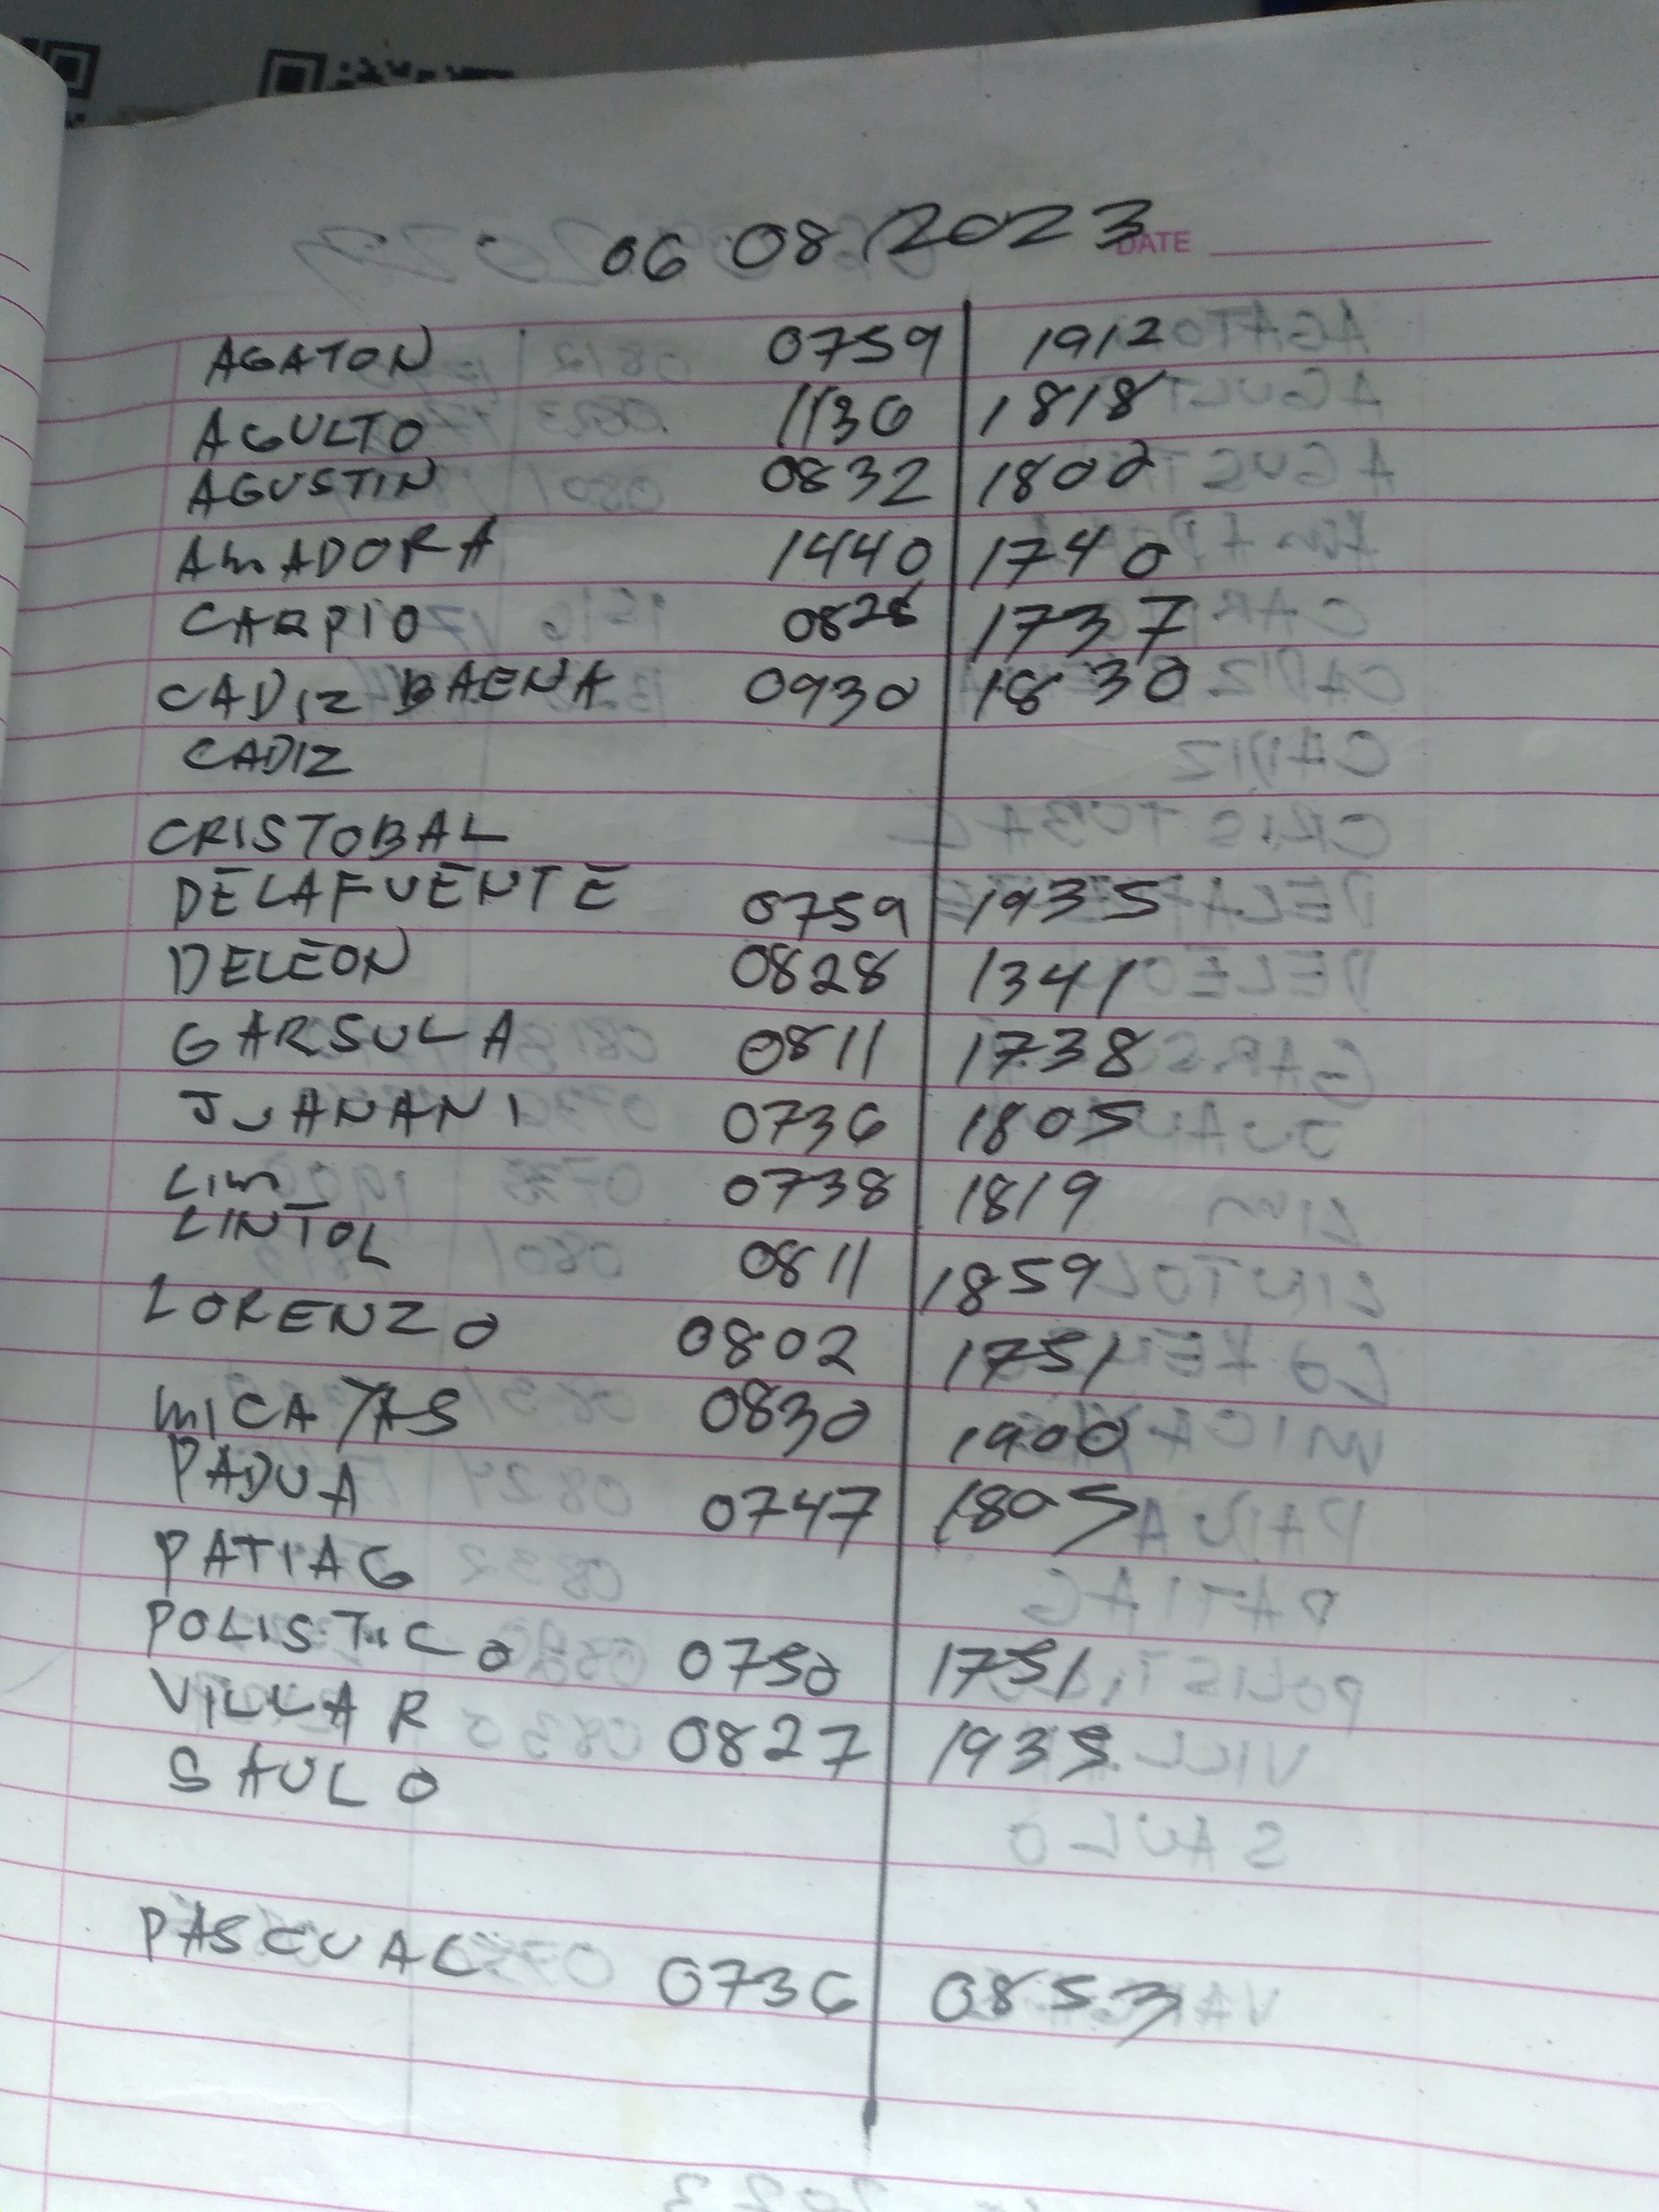 06 08 2023
DATE
AGATON 0759 1912
AGULTO 1136 1818
AGUSTIN 0832 1802
AMADORA 1440 1740
CARPIO 0826 1737
CADIZ BAENA 0930 1830
CADIZ
CRISTOBAL
DELAFUENTE 0759 1935
DELEON 0828 1341
GARSULA 0811 1738
JUANANI 0736 1805
LIM 0738 1819
LINTOL 0811 1859
LORENZO 0802 1751
MICAYAS 0830 1900
PADUA 0747 1805
PATIAG
POLISTICO 0750 1751
VILLAR 0827 1935
SAULO
PASCUAL 0736 0853